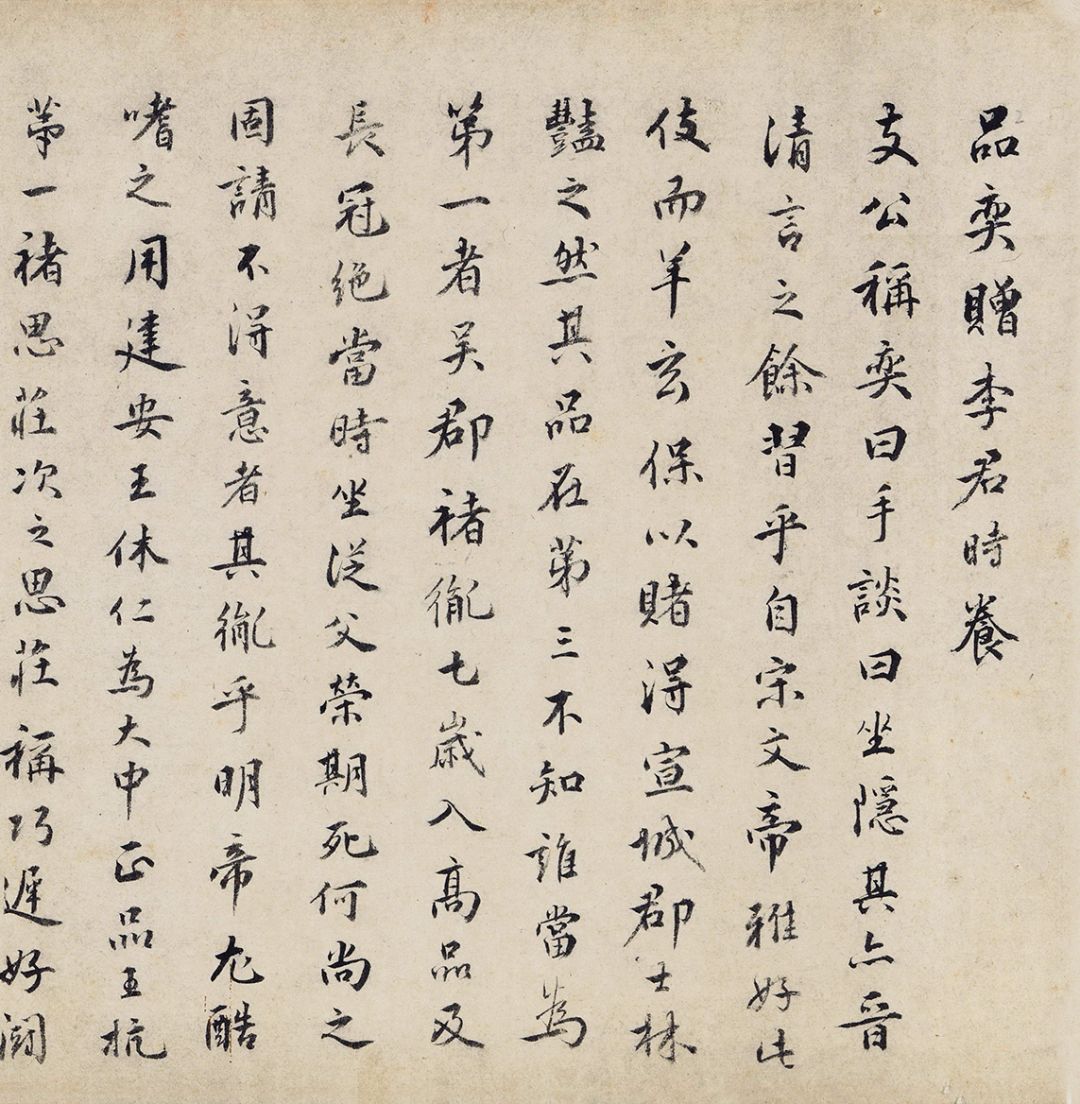 品奕贈李君時養
支公稱奕曰手談曰坐隱其亦晉
清言之餘習乎自宋文帝雅好此
伎而羊玄保以賭得宣城郡士林
豔之然其品在第三不知誰當為
第一者吴郡褚胤七歲入高品及
長冠絶當時坐從父榮期死何尚之
固請不得意者其胤乎明帝尤酷
嗜之用建安王休仁為大中正品王抗
第一褚思莊次之思莊稱巧遲好鬭